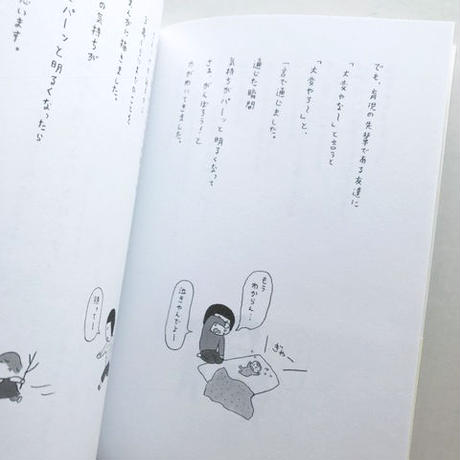 でも、育児の先輩である友達に
「大変やな〜」と言うと
「大変やす〜」と、
一言で通じました。
通じた瞬間
気持ちがパーッと明るくなって
さあ、がんばろう!と
もうわからん…
泣きやんでよー
ぎゃー
まんがに描きました。
の気持ちが
パーンと明るくなったら
思います。
待ってー